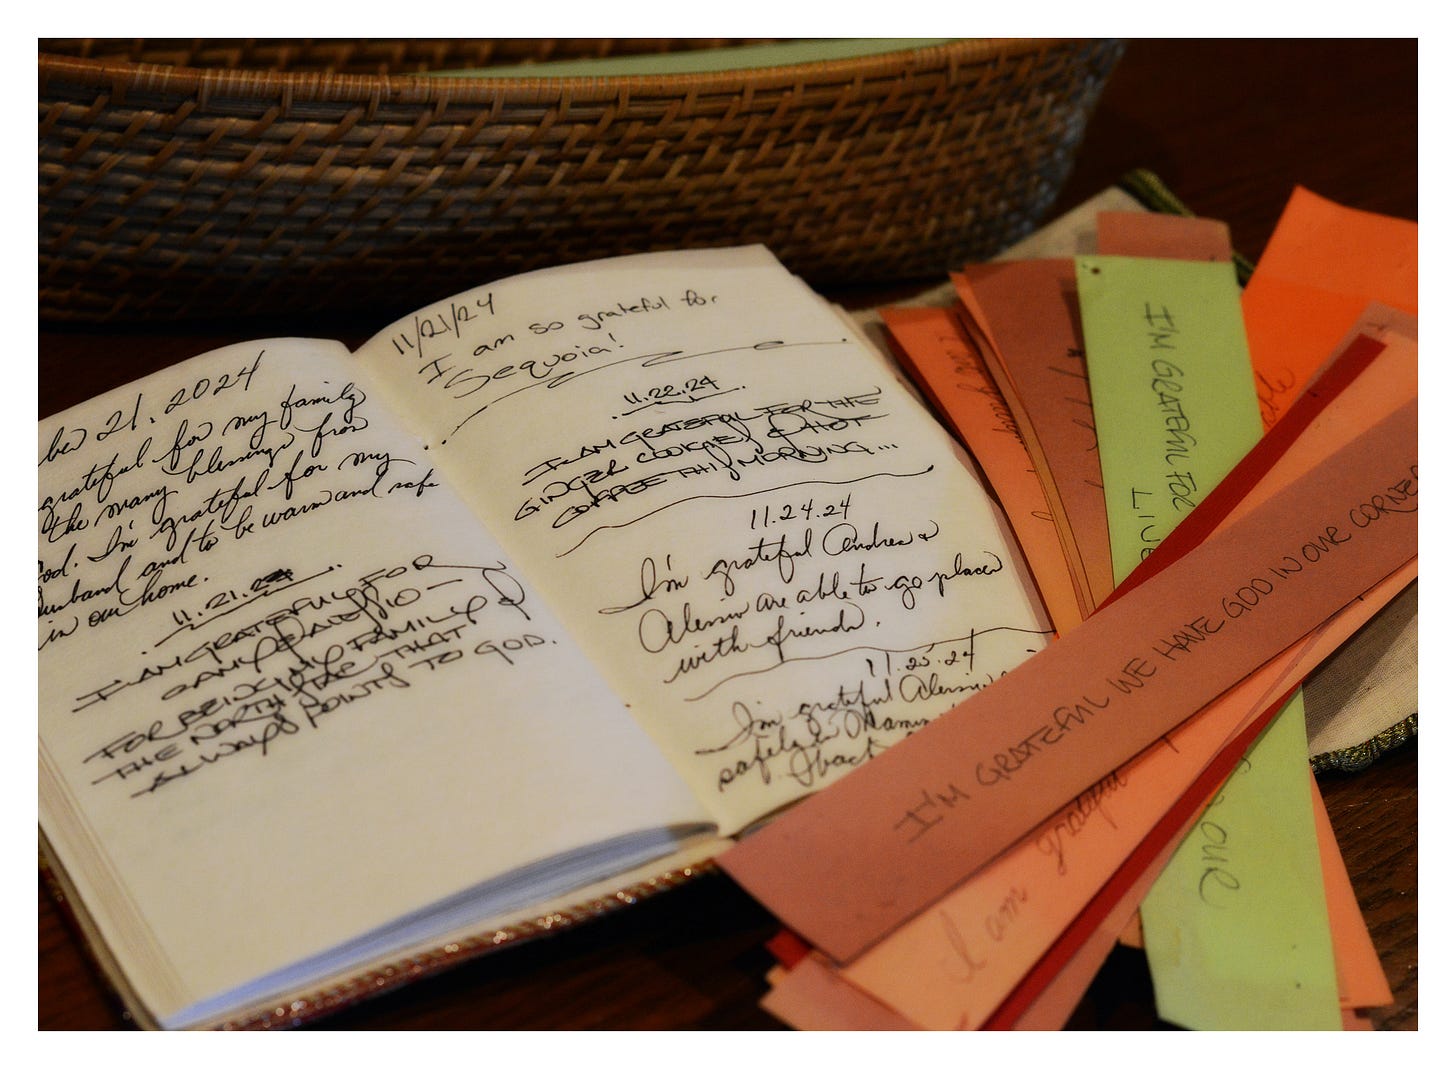 ber 21, 2024
grateful for my family
the many blessings from
God. I'm grateful for my
husband and to be warm and safe
in our home.
11.21.24
I AM GRATEFUL FOR
FOR BEING MY FAMILY &
THE NORTH THAT
ALWAYS POINTS TO GOD.
11/21/24
I am so grateful for
Sequoia!
11.22.24
I AM GRATEFUL FOR THE
GINGER COOKIES & HOT
COFFEE THIS MORNING...
11.24.24
I'm grateful Andrea &
Alessio are able to go places
with friends.
11.25.24
I'm grateful Alessio
safely
I'M GRATEFUL FOR
LIVE
OUR
I'M GRATEFUL WE HAVE GOD IN OUR CORNER
I am grateful